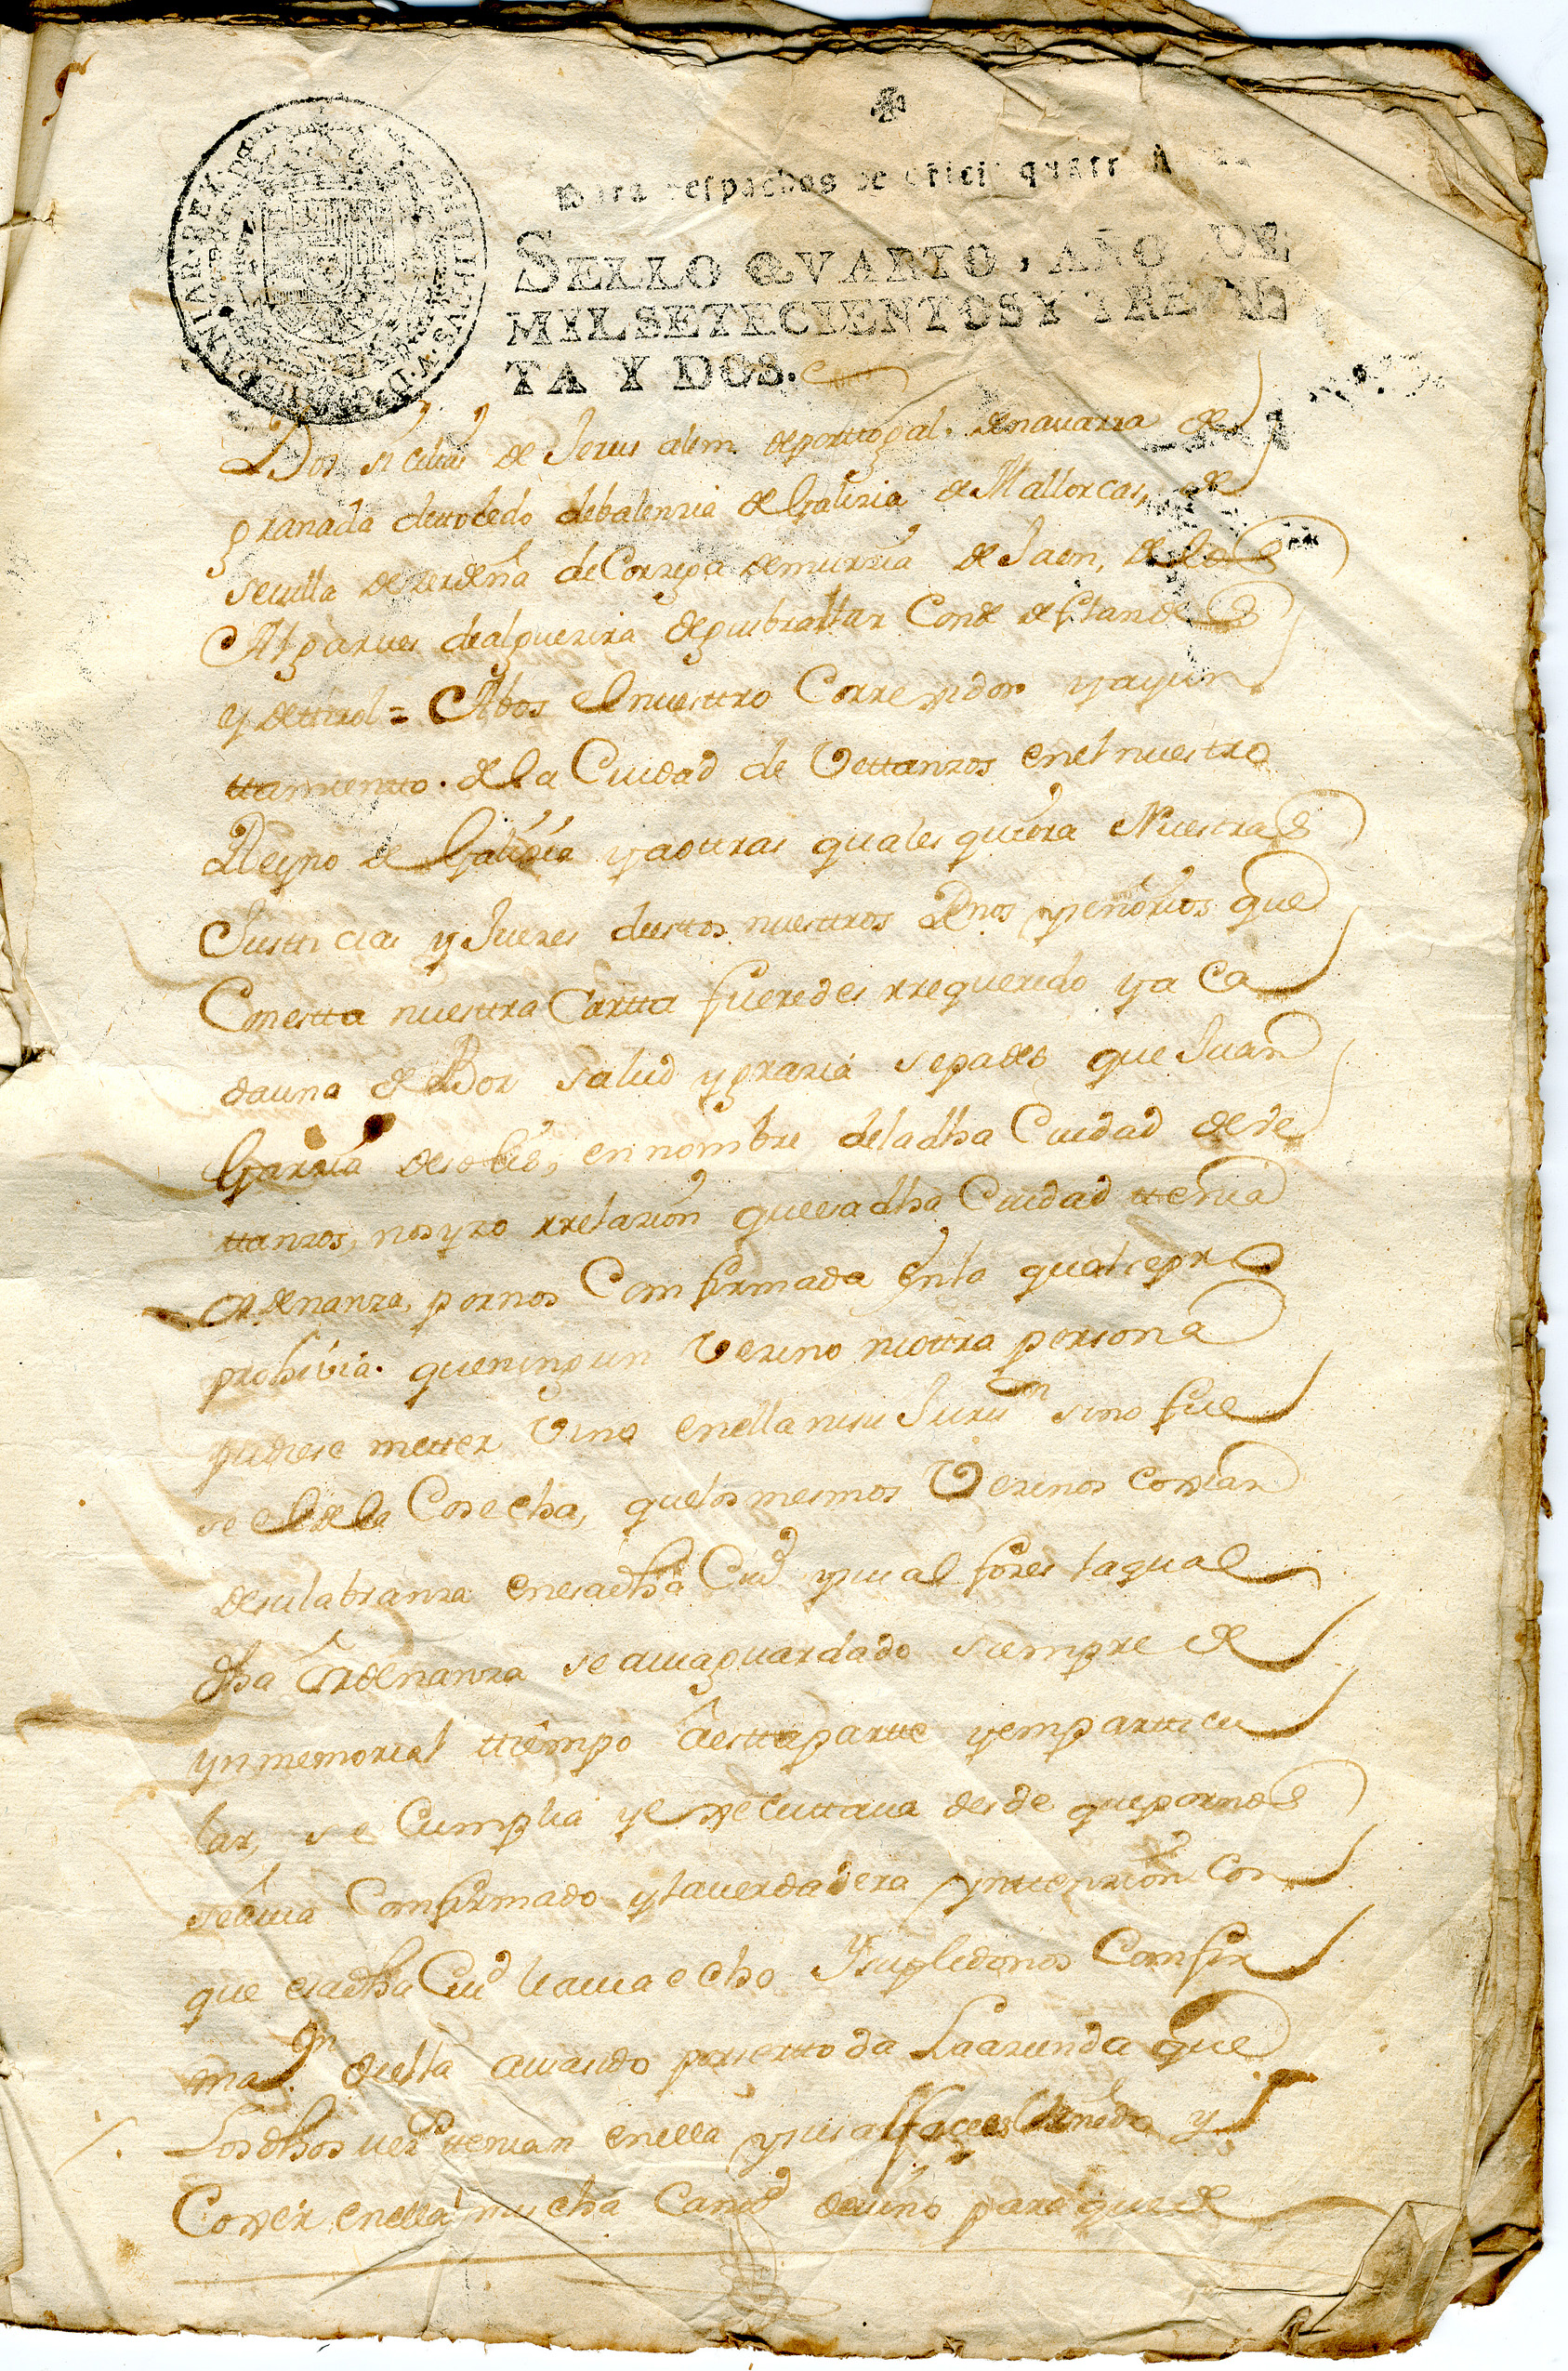 Para despachos de oficio quatr
SELLO QVARTO, AÑO DE
MIL SETECIENTOS Y TREIN
TA Y DOS.
Dos sicilias de Jerus alem. de porttogal. de nauarra de
granada de ttoledo de balenzia de Galizia de Mallorcas, de
seuilla de zerdeña de Corzega de murzia de Jaen, de los
Algarues de alguezira de guibralttar Conde de flandes
y de ttirol = A bos el nuesttro Correxidor y ayun
ttamientto. de la Ciudad de Vettanzos en el nuestro
Reyno de Galizia y a ottras quales quiera Nuestras
Justticias y Juezes desttos nuesttros Rnos y señorios que
Con estta nuesttra Cartta fueredes rrequerido y a Ca
da uno de Bos salud y grazia sepades que Juan
Garzia de solis, en nombre de la dha Ciudad de Ve
ttanzos, nos yzo rrelazion que esa dha Ciudad ttenia
ordenanza, por nos Comfirmada en la qual se pro
prohivia. que ningun Vezino ni ottra persona
pudiese metter Vino en ella ni su Jurisn sino fue
se el de la Cosecha, que los mesmos Vezinos coxian
de su labranza en esa dha Ciud y su al fozes la qual
dha Ordenanza se auia guardado siempre de
yn memorial ttiempo a estta partte y em partticu
lar, se Cumplia y executtaua desde que por nos
se auia Comfirmado y la uerdadera ynttenzion con
que esa dha Ciud le auia echo Y suplidonos Comfir
mazon della auiando por zertto da La azienda que
Los dhos uezos ttenian en ella y su alfaces y
Coxer en ella mucha Cantd de uino para que de